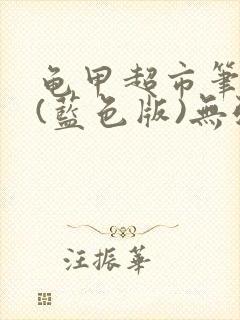 龟甲超市筆
(藍色版)無
汪振華